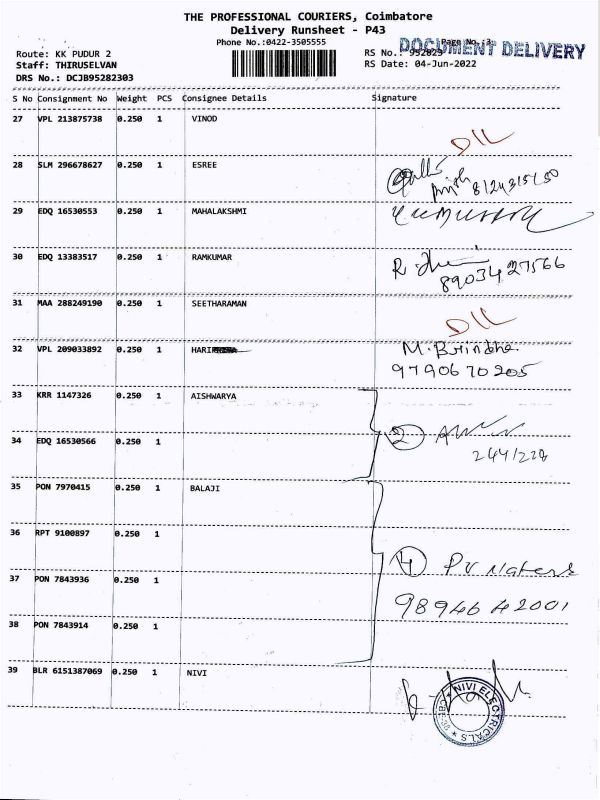 THE PROFESSIONAL COURIERS, Coimbatore
Delivery Runsheet - P43
Phone No.:0422-3505555
Page No.:3
DOCUMENT DELIVERY
Route: KK PUDUR 2
RS No.: 992029
Staff: THIRUSELVAN
RS Date: 04-Jun-2022
DRS No.: DCJB95282303
S No Consignment No Weight PCS Consignee Details Signature
27 VPL 213875738 0.250 1 VINOD
DIL
28 SLM 296678627 0.250 1 ESREE
29 EDQ 16530553 0.250 1 MAHALAKSHMI
30 EDQ 13383517 0.250 1 RAMKUMAR
8903427566
31 MAA 288249190 0.250 1 SEETHARAMAN
DIL
32 VPL 209033892 0.250 1 HARI
M. Brindha
9790670205
33 KRR 1147326 0.250 1 AISHWARYA
2
34 EDQ 16530566 0.250 1
244/228
35 PON 7970415 0.250 1 BALAJI
36 RPT 9100897 0.250 1
4
37 PON 7843936 0.250 1
9894642001
38 PON 7843914 0.250 1
39 BLR 6151387069 0.250 1 NIVI
NIVI ELECTRICALS